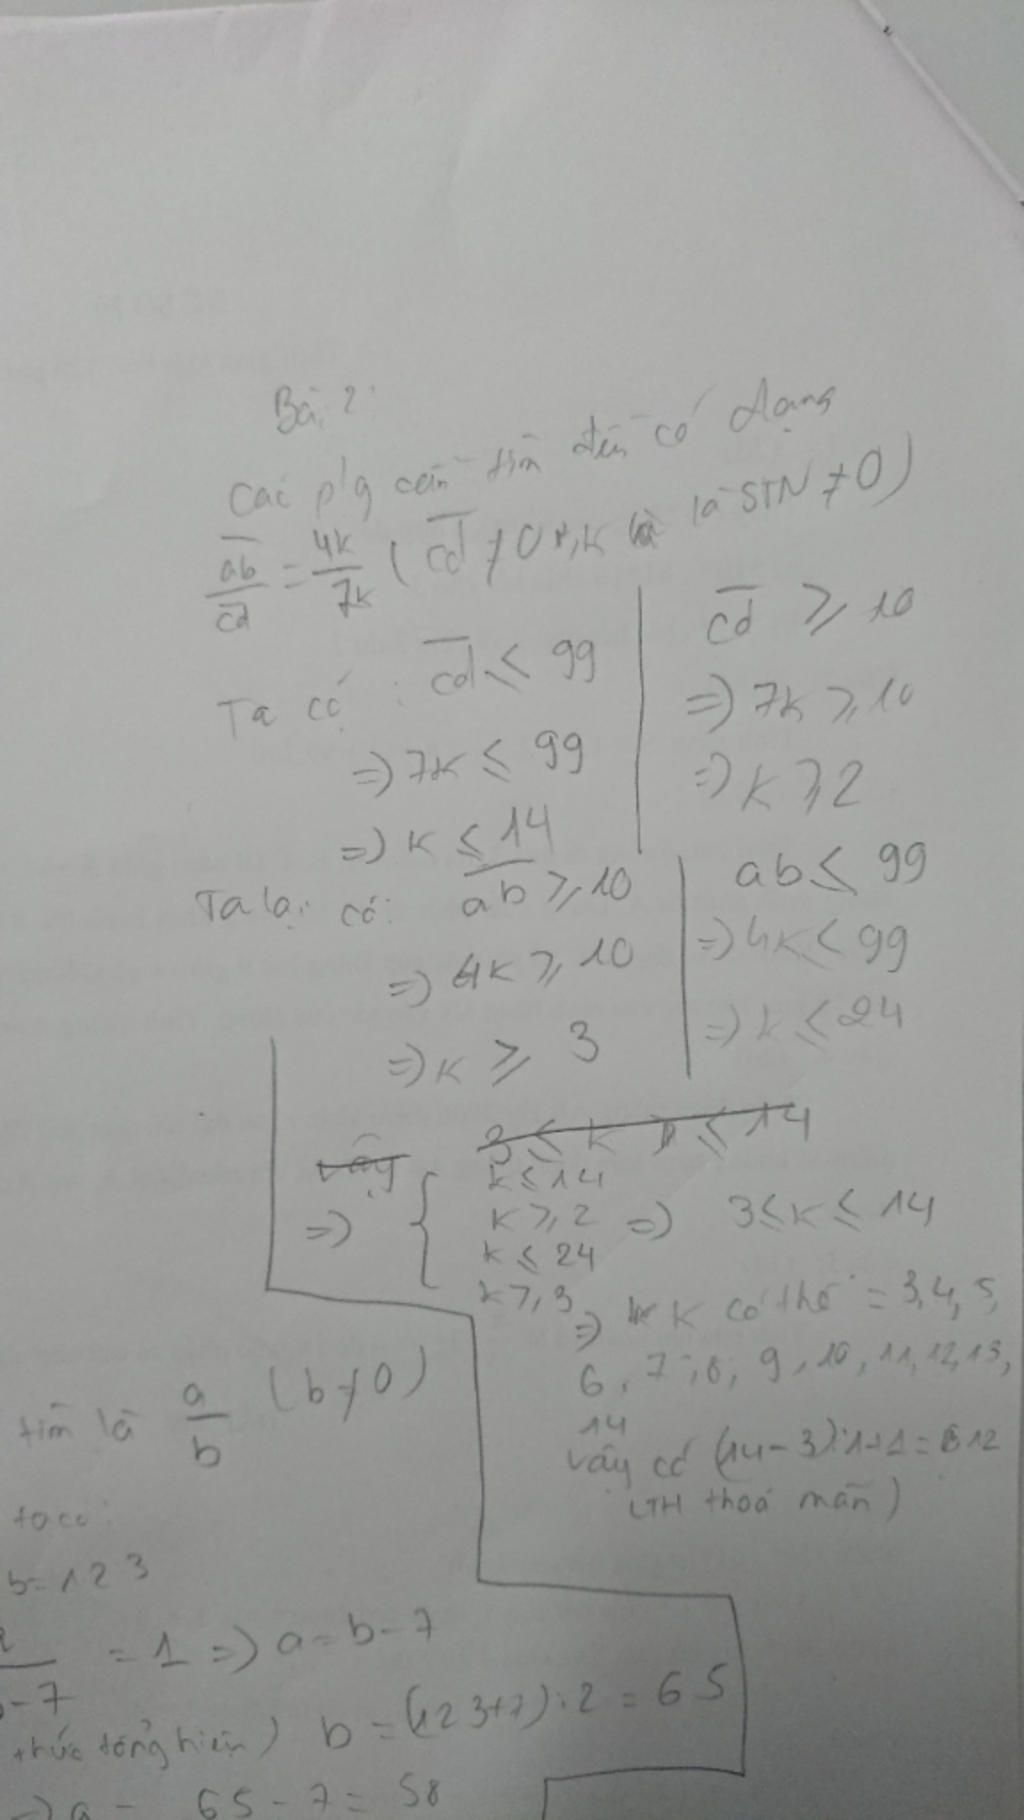 Bài 2:
Các p/g cần tìm đều có dạng
ab/cd = 4k/7k ( cd ≠ 0, k là STN ≠ 0)
Ta có : cd ≤ 99
=> 7k ≤ 99
=> k ≤ 14
cd ≥ 10
=> 7k ≥ 10
=> k ≥ 2
Ta lại có: ab ≥ 10
=> 4k ≥ 10
=> k ≥ 3
ab ≤ 99
=> 4k ≤ 99
=> k ≤ 24
Vậy 3 ≤ k ≤ 14
=> { k ≤ 14
k ≥ 2
k ≤ 24
k ≥ 3
=> 3 ≤ k ≤ 14
=> k có thể = 3, 4, 5,
6, 7, 8, 9, 10, 11, 12, 13,
14
Vậy có (14 - 3) : 1 + 1 = 12
(TH thoả mãn)
tìm là a/b (b ≠ 0)
ta có:
b = 123
-7 = 1 => a = b - 7
thức tổng hiệu) b = (123 + 7) : 2 = 65
=> a = 65 - 7 = 58